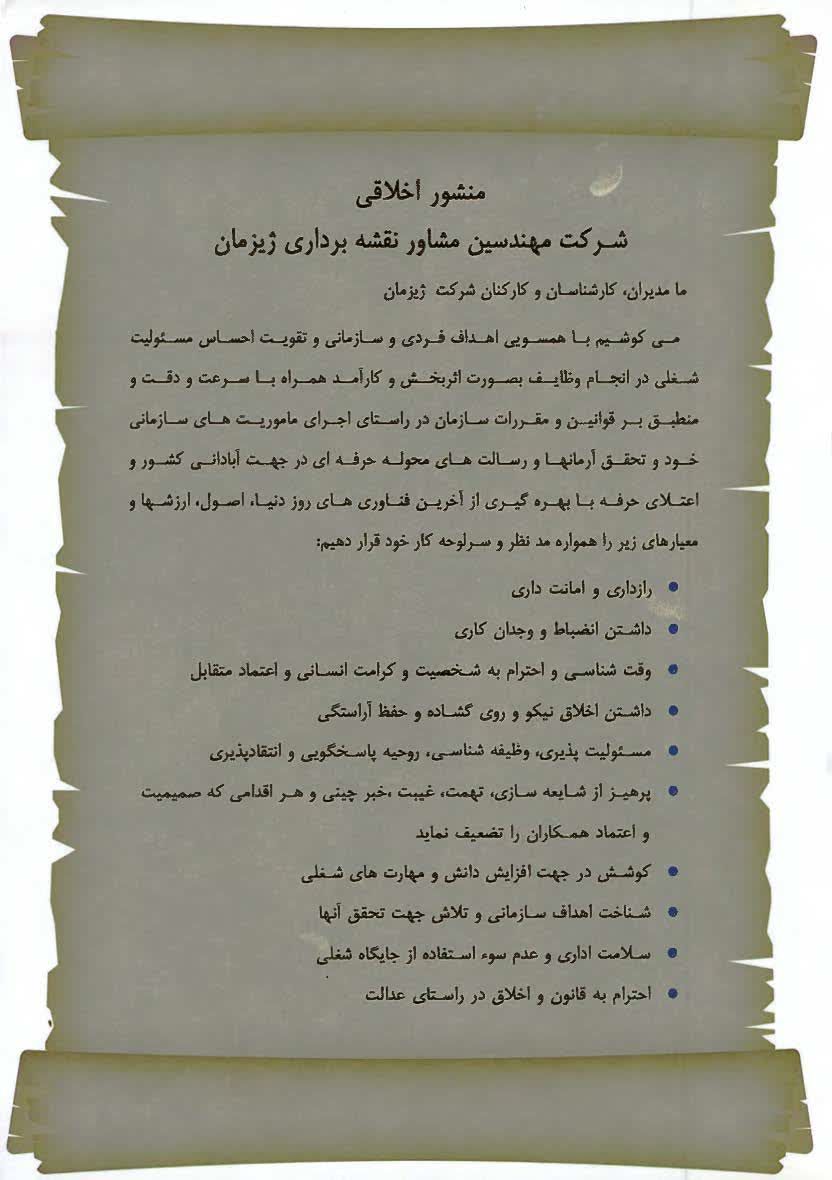 منشور اخلاقی
شرکت مهندسین مشاور نقشه برداری ژیزمان
ما مدیران، کارشناسان و کارکنان شرکت ژیزمان
می کوشیم با همسویی اهداف فردی و سازمانی و تقویت احساس مسئولیت
شغلی در انجام وظایف بصورت اثربخش و کارآمد همراه با سرعت و دقت و
منطبق بر قوانین و مقررات سازمان در راستای اجرای ماموریت های سازمانی
خود و تحقق آرمانها و رسالت های محوله حرفه ای در جهت آبادانی کشور و
اعتلای حرفه با بهره گیری از آخرین فناوری های روز دنیا، اصول، ارزشها و
معیارهای زیر را همواره مد نظر و سرلوحه کار خود قرار دهیم:
• رازداری و امانت داری
• داشتن انضباط و وجدان کاری
• وقت شناسی و احترام به شخصیت و کرامت انسانی و اعتماد متقابل
• داشتن اخلاق نیکو و روی گشاده و حفظ آراستگی
• مسئولیت پذیری، وظیفه شناسی، روحیه پاسخگویی و انتقادپذیری
• پرهیز از شایعه سازی، تهمت، غیبت ،خبر چینی و هر اقدامی که صمیمیت
و اعتماد همکاران را تضعیف نماید
• کوشش در جهت افزایش دانش و مهارت های شغلی
• شناخت اهداف سازمانی و تلاش جهت تحقق آنها
• سلامت اداری و عدم سوء استفاده از جایگاه شغلی
• احترام به قانون و اخلاق در راستای عدالت